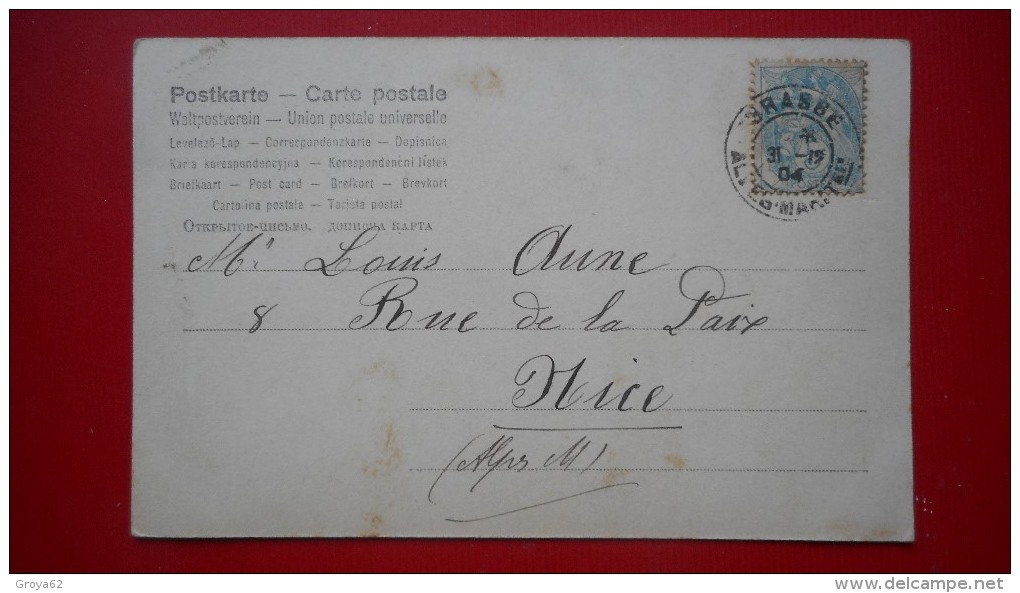 Postkarte — Carte postale
Weltpostverein — Union postale universelle
Levelező-Lap — Correspondenzkarte — Dopisnice
Karta korespondencyjna — Korespondenční lístek
Briefkaart — Post card — Brefkort — Brevkort
Cartolina postale — Tarjeta postal
Открытое-письмо. дописна карта
GRASSE
31 -12
04
ALPES-MARITMES
Mr Louis Aune
8 Rue de la Paix
Nice
(Alps M)
Groya62
www.delcampe.net